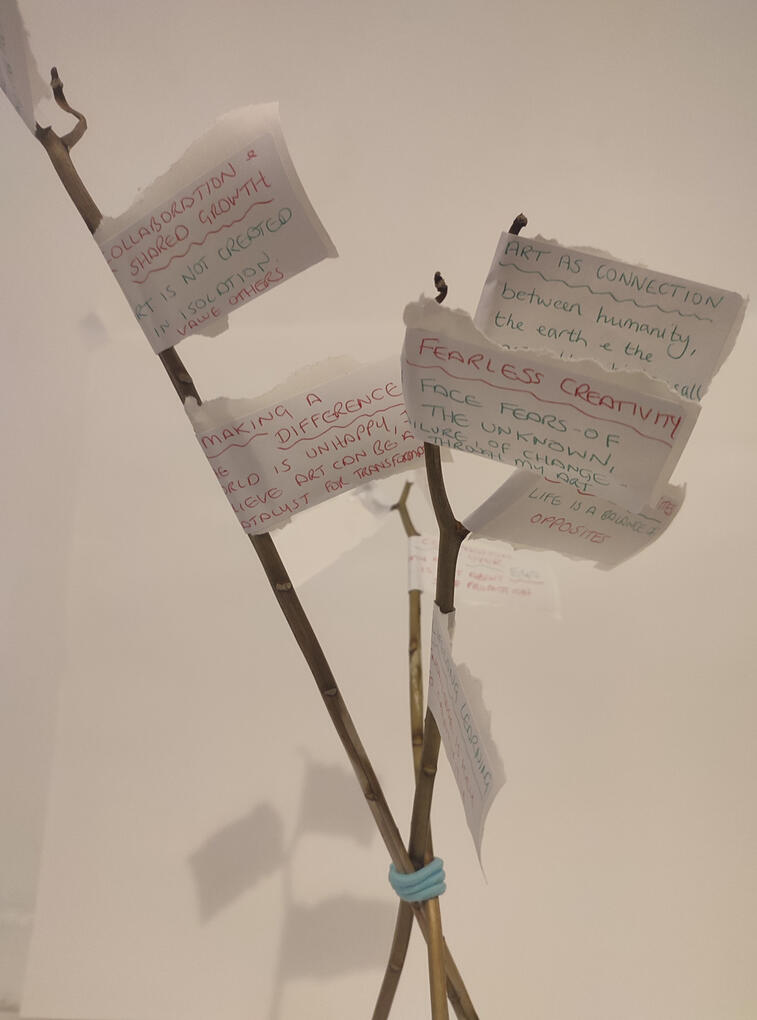 OLLABORATION &
SHARED GROWTH
RT IS NOT CREATED
IN ISOLATION.
VALUE OTHERS
MAKING A
DIFFERENCE
RLD IS UNHAPPY, I
LIEVE ART CAN BE A
ATALYST FOR TRANSFORMA
ART AS CONNECTION
between humanity,
the earth & the
FEARLESS CREATIVITY
FACE FEARS-OF
THE UNKNOWN,
ILURE OF CHANGE -
THROUGH MY ART
LIFE IS A BALANCE OF
OPPOSITES
LEARNING